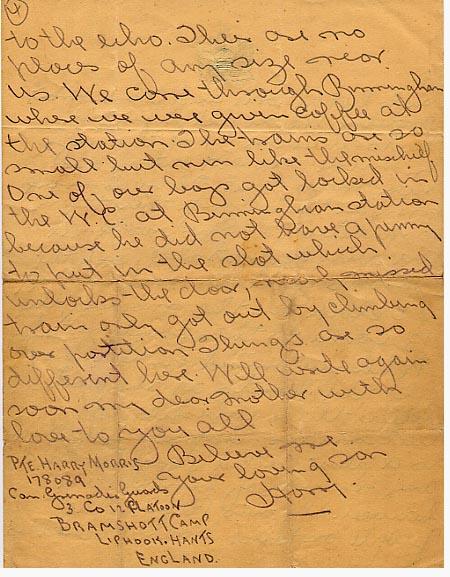 4
to the echo. Their are no
places of any size near
us. We came through Birmingham
where we were given coffee at
the station. The trains are so
small but run like the mischief
One of our boys got locked in
the W.C. at Birmingham station
because he did not have a penny
to put in the slot which
unlocks the door, missed
train only got out by climbing
over partition. Things are so
different here. Will write again
soon my dear Mother with
love to you all
Believe me
your loving son
Harry.
PTE. HARRY MORRIS
178089
Can. Grenadier Guards
3 Co 12 PLATOON
BRAMSHOTT CAMP
LIPHOOK. HANTS
ENGLAND.